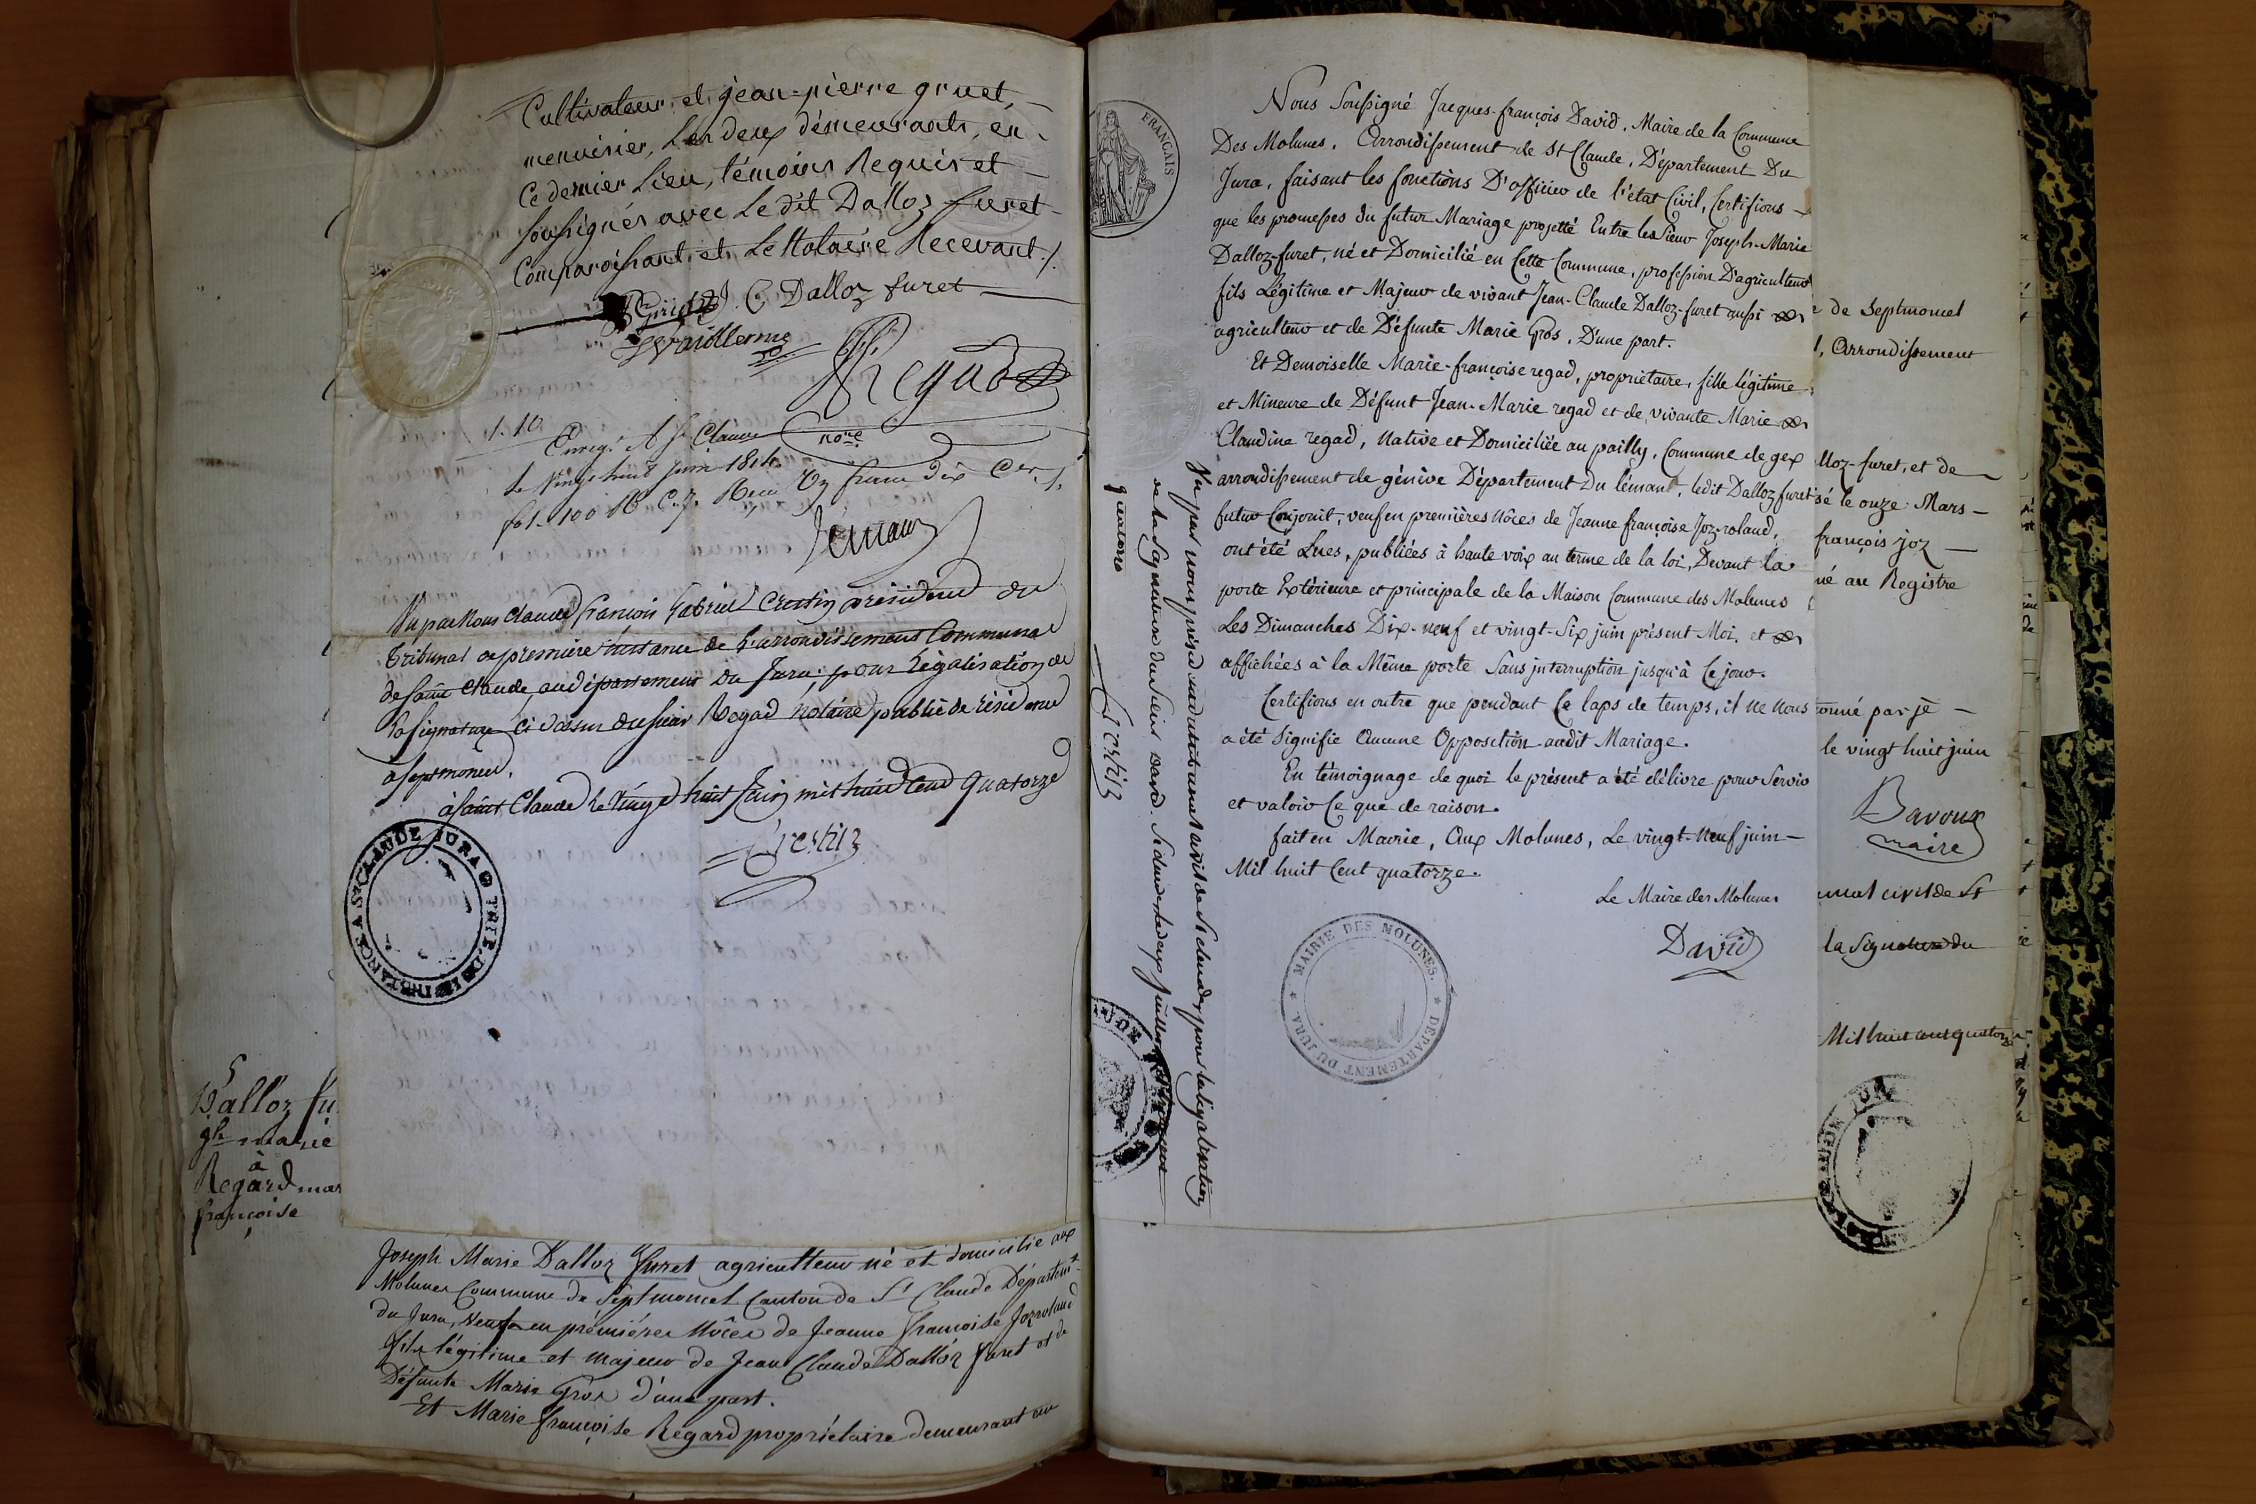 Cultivateur, et jean-pierre gruet,
menuisier, Les deux démeurants, en
Ce dernier Lieu, témoins Requis et
soussignés avec Le dit Dalloz furet
Comparoissant, et Le Notaire Recevant./.
J. C. Dalloz furet
Vuaillerme
Regad
nore
1.10
Enreg. A St Claude
le vingt huit juin 1814
fol. 100 Ro C. 7. Reçu Un franc dix Ces
Vu par Nous Claude françois Gabriel Crestin président du
Tribunal de première instance de L'arrondissement Communal
de saint Claude, audépartement du Jura; pour Légalisation de
La signature Ci dessus du sieur Regad notaire public de résidence
à septmoncel.
à saint Claude le Vingt huit Juin mil huit Cent Quatorze
Crestin
TRIB. DE INSTANCE A ST CLAUDE JURA
5
Dalloz fu
gh marie
à
Regard mar
françoise
Joseph Marie Dalloz Furet agriculteur né et domicilié aux
Molunes Commune de Septmoncel Canton de St Claude Départemt
du Jura, Veuf en premières Nôces de Jeanne Françoise Jozroland
fils légitime et majeur de Jean Claude Dalloz furet et de
Défunte Marie Gros d'une part.
Et Marie françoise Regard propriétaire demeurant au
FRANÇAIS
Nous Soussigné Jacques-françois David, Maire de la Commune
Des Molunes, Arrondissement de St Claude, Département Du
Jura, faisant les fonctions D'officier de l'état Civil, Certifions
que les promesses du futur Mariage projetté Entre les Sieur Joseph-Marie
Dalloz-furet, né et Domicilié en Cette Commune, profession D'agriculteur
fils Légitime et Majeur de vivant Jean-Claude Dalloz-furet aussi
agriculteur et de Défunte Marie Gros, D'une part.
Et Demoiselle Marie-françoise regad, propriétaire, fille légitime
et Mineure de Défunt Jean-Marie regad et de vivante Marie
Claudine regad, Native et Domiciliée au pailly, Commune de gex
arrondissement de génève Département Du léman, ledit Dalloz furet
futur Conjoint, veuf en premières Nôces de Jeanne françoise Joz-roland,
ont été Lues, publiées à haute voix au terme de la loi, Devant la
porte Extérieure et principale de la Maison Commune des Molunes
Les Dimanches Dix-neuf et vingt-Six juin présent Moi, et
affichées à la Même porte Sans jnterruption jusqu'à Ce jour.
Certifions en outre que pendant Ce laps de temps, il Ne Nous
a été Signifié Aucune Opposition audit Mariage.
En témoignage de quoi le présent a été délivré pour Servir
et valoir Ce que de raison.
fait en Mairie, Aux Molunes, Le vingt-Neuf juin
Mil huit Cent quatorze.
Le Maire des Molunes
David
MAIRIE DES MOLUNES. DEPARTEMENT DU JURA
Vu par nous président du tribunal civil de St claude, pour la légalisation
de la Signature du Sieur David. St claude le deux juillet
quatorze
Crestin
de Septmoncel
, Arrondissement
lloz-furet, et de
sé le onze Mars
françois joz
né au Registre
onné par je
le vingt huit juin
Bavoux
maire
unal civil de St
la Signature du
Mil huit cent quatorze